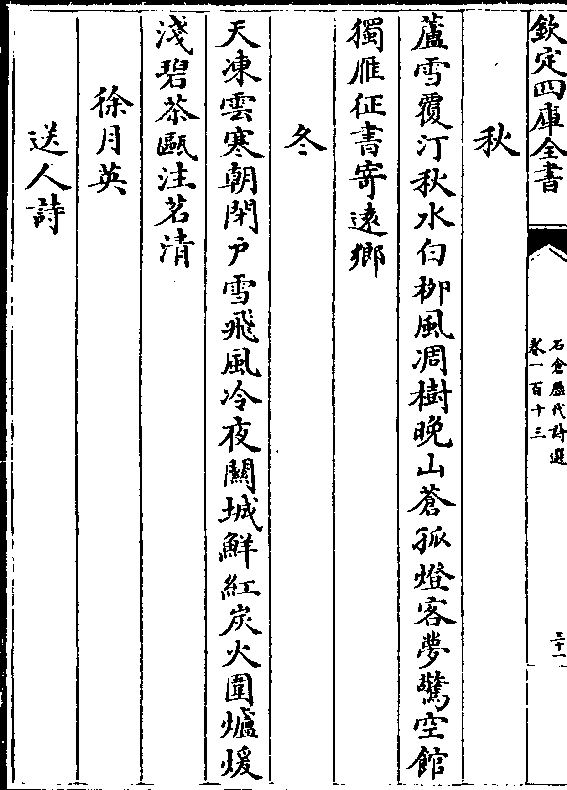 欽定四庫全書
石倉歷代詩選
卷一百十三
三十一
秋
蘆雪覆汀秋水白柳風凋樹晚山蒼孤燈客夢驚空館
獨雁征書寄遠鄉
冬
天凍雲寒朝閉户雪飛風冷夜關城鮮紅炭火圍爐煖
淺碧茶甌注茗清
徐月英
送人詩